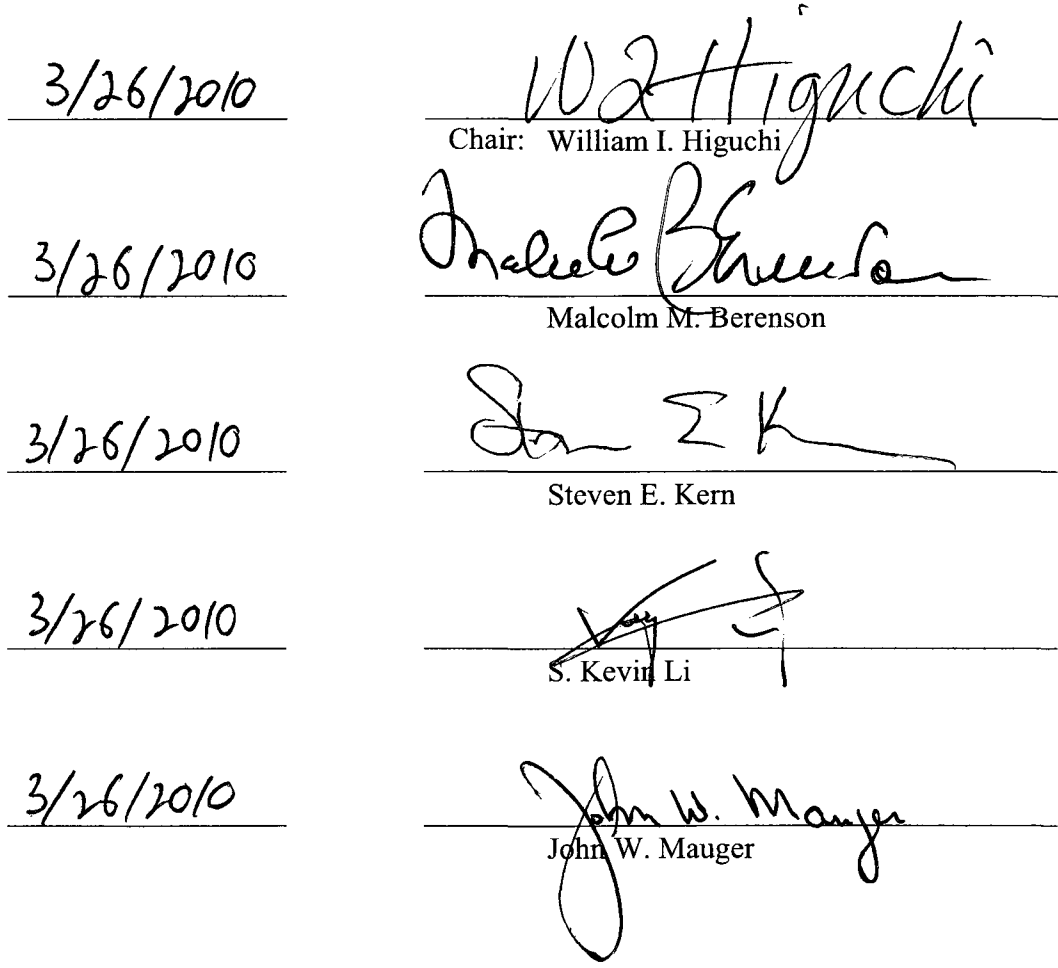 3/26/2010 W I Higuchi
Chair: William I. Higuchi
3/26/2010 Malcolm Berenson
Malcolm M. Berenson
3/26/2010 Steven E K
Steven E. Kern
3/26/2010
S. Kevin Li
3/26/2010 John W. Mauger
John W. Mauger